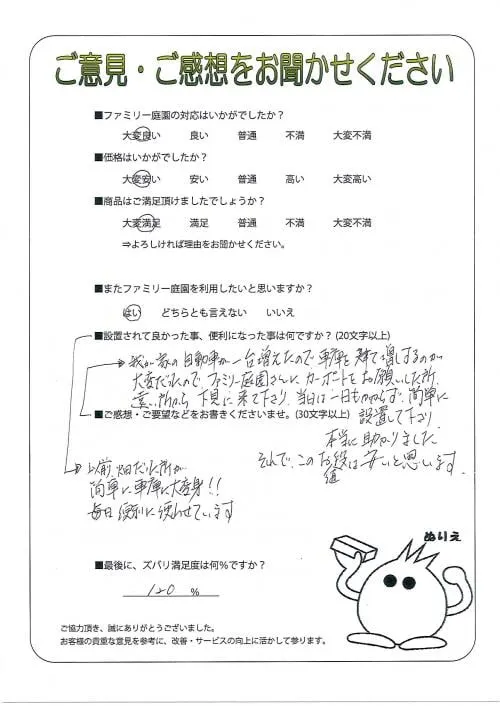 ご意見・ご感想をお聞かせください
■ファミリー庭園の対応はいかがでしたか？
大変良い 良い 普通 不満 大変不満
■価格はいかがでしたか？
大変安い 安い 普通 高い 大変高い
■商品はご満足頂けましたでしょうか？
大変満足 満足 普通 不満 大変不満
⇒よろしければ理由をお聞かせください。
■またファミリー庭園を利用したいと思いますか？
はい どちらとも言えない いいえ
■設置されて良かった事、便利になった事は何ですか？(20文字以上)
我が家の自動車が一台増えたので車庫を建て増しするのが
大変だったのでファミリー庭園さんにカーポートをお願いした所
遠い所から下見に来て下り、当日は一日もかからず、簡単に
設置して下り
本当に助かりました
それで、このお値段は安いと思います
■ご感想・ご要望などをお書きくださいませ。(30文字以上)
以前畑だった所が
簡単に車庫に大変身！！
毎日便利に使わせています
■最後に、ズバリ満足度は何％ですか？
120 %
ぬりえ
ご協力頂き、誠にありがとうございました。
お客様の貴重な意見を参考に、改善・サービスの向上に活かして参ります。